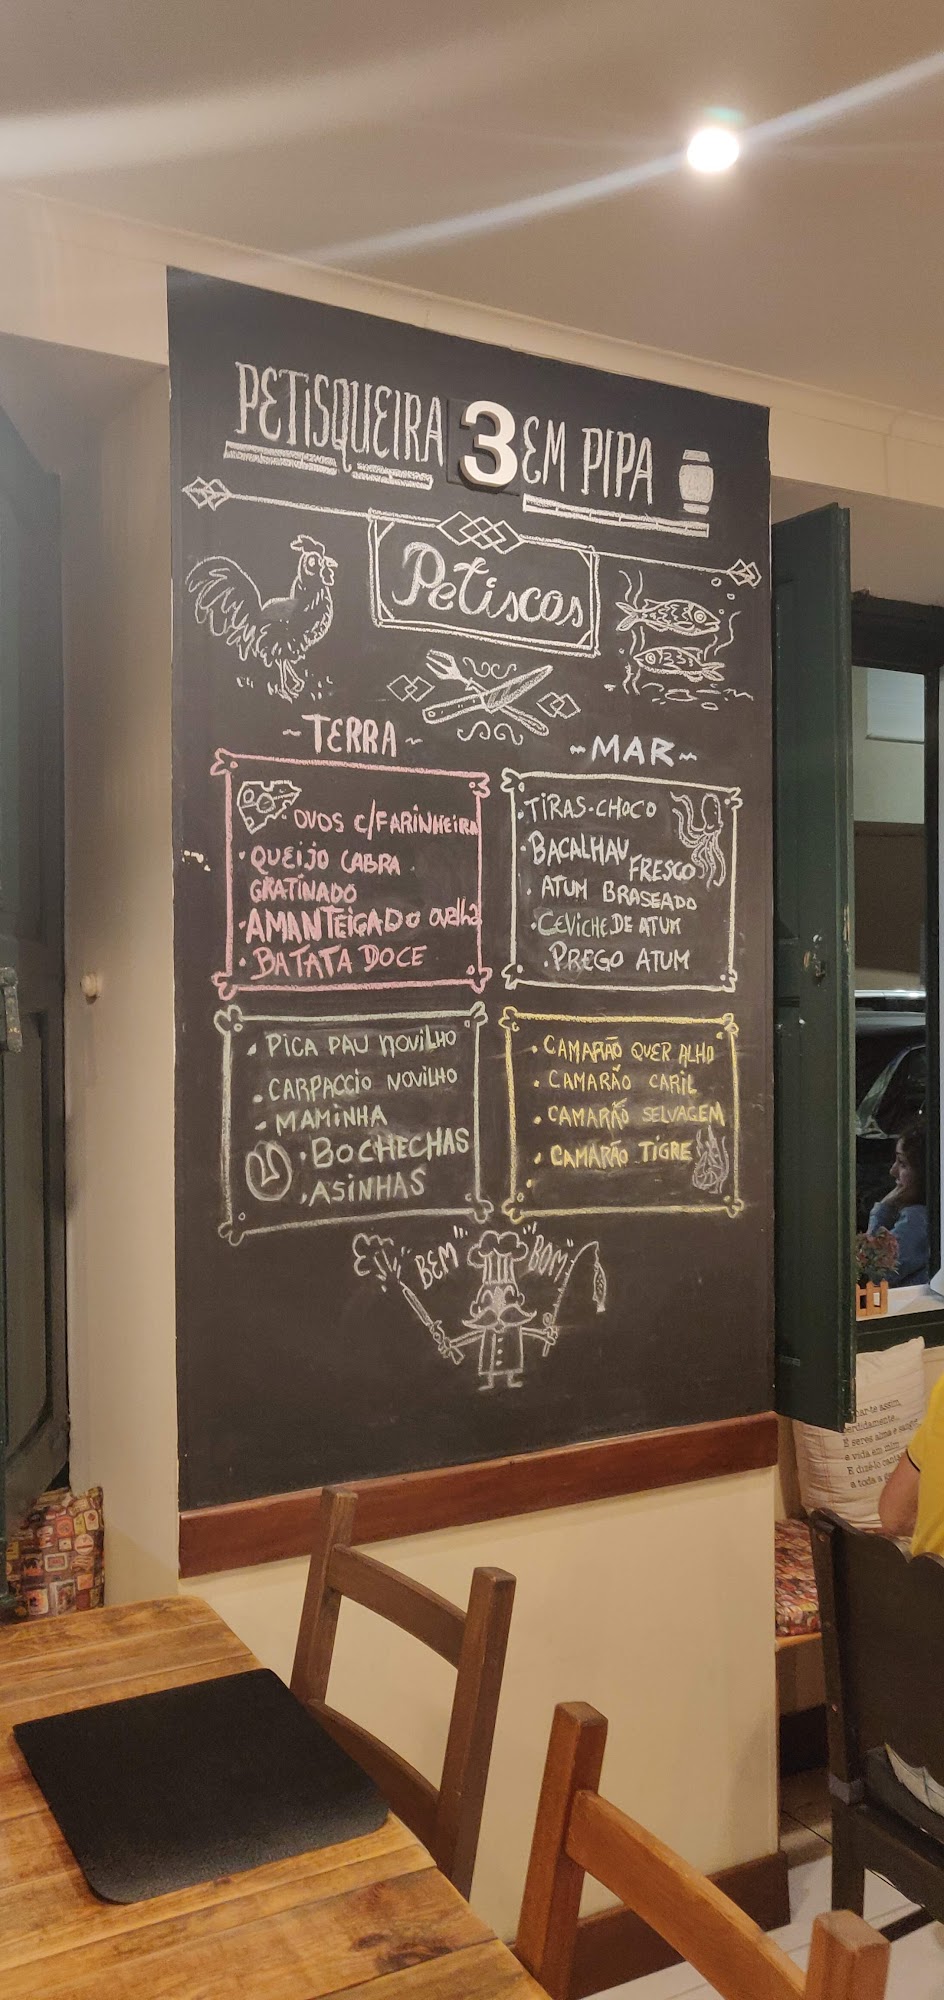 PETISQUEIRA 3 EM PIPA
Petiscos
~TERRA~
OVOS C/FARINHEIRA
• QUEIJO CABRA
GRATINADO
• AMANTEIGADO ovelha
• BATATA DOCE
• PICA PAU NOVILHO
• CARPACCIO NOVILHO
• MAMINHA
• BOCHECHAS
• ASINHAS
~MAR~
• TIRAS-CHOCO
• BACALHAU FRESCO
• ATUM BRASEADO
• CEVICHE DE ATUM
• PREGO ATUM
• CAMARÃO QUER ALHO
• CAMARÃO CARIL
• CAMARÃO SELVAGEM
• CAMARÃO TIGRE
"BEM" "BOM"
assim,
perdidamente...
E seres alma e sangue
e vida em mim
E dizê-lo
a toda a